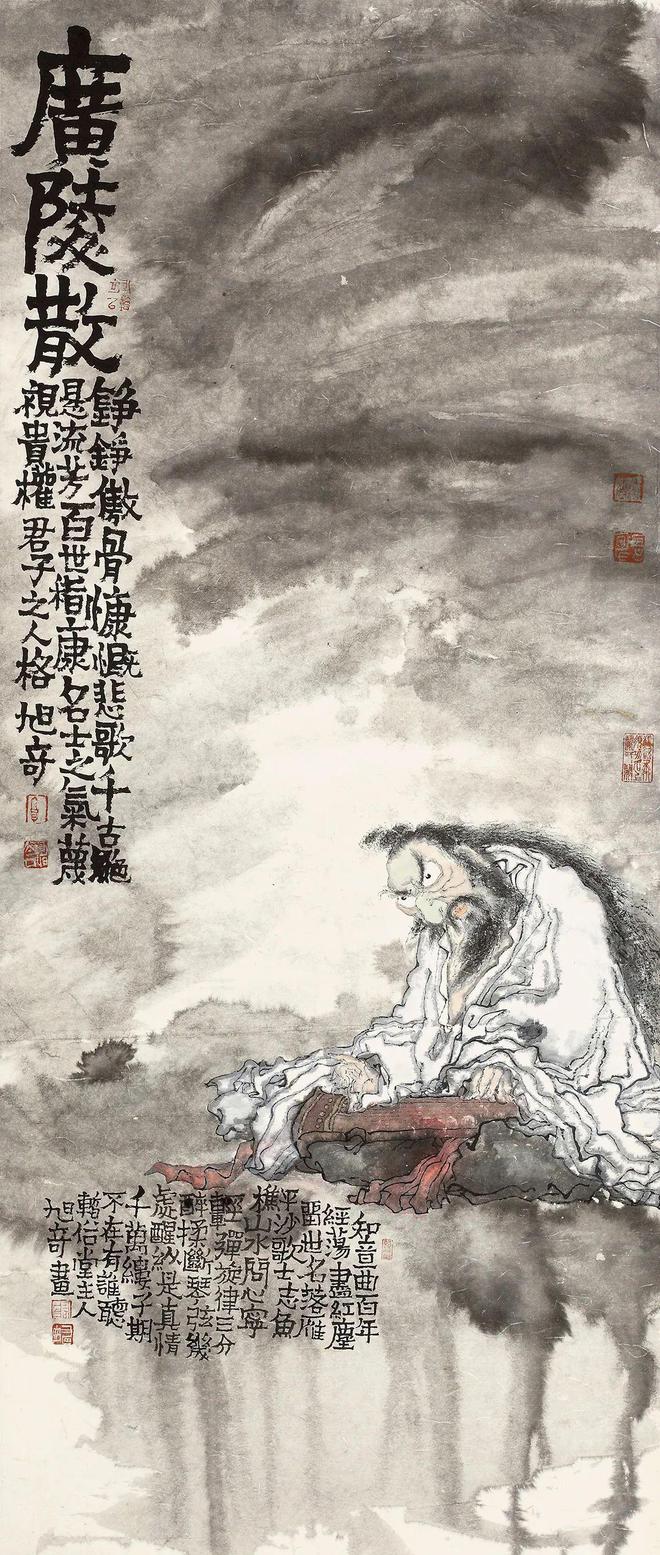 廣陵散
錚錚傲骨慷慨悲歌千古
是流芳百世嵇康名士之氣蔑
視貴權君子之人格 旭奇
知音曲百年
經蕩盡紅塵
留世名落雁
平沙歌士志魚
樵山水問心寧
輕彈旋律三分
醉揉斷琴弦幾
處醒縱是真情
千萬縷子期
不在有誰聽
俗堂主人
旭奇畫